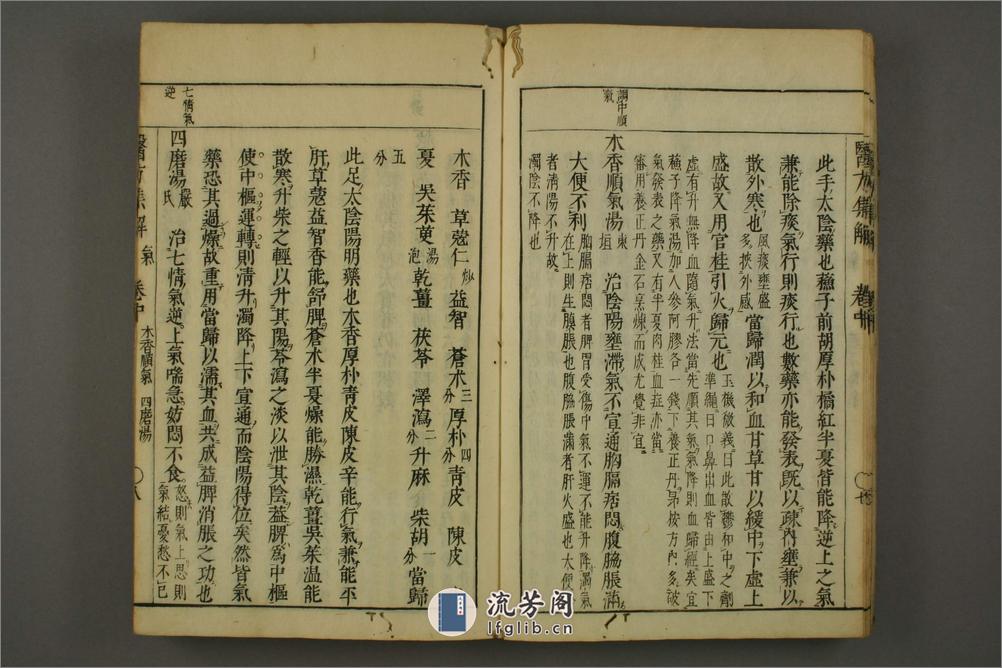 此手太陰藥也蘇子前胡厚朴橘紅半夏皆能降逆上之氣
兼能除痰氣行則痰行也數藥亦能發表既以疎內壅兼以
散外寒也風痰壅盛多挾外感當歸潤以和血甘草甘以緩中下虛上
盛故又用官桂引火歸元也玉機微義曰此散鬱和中之劑準繩曰口鼻出血皆由上盛下
虛有升無降血隨氣升法當先順其氣氣降則血歸經矣宜
蘇子降氣湯加人參阿膠各一錢下養正丹昂按方內多破
氣發表之藥又有半夏肉桂血症亦當
審用養正丹金石烹煉而成尤覺非宜
調中順氣
木香順氣湯東垣治陰陽壅滯氣不宣通胸膈痞悶腹脇脹滿
大便不利胸膈痞悶者脾胃受傷中氣不運不能升降濁氣在上則生䐜脹也腹脇脹滿者肝火盛也大便不利
者清陽不升故
濁陰不降也
醫方集解
卷中
木香 草蔻仁炒益智 蒼朮三分厚朴四分青皮 陳皮
夏 吳茱萸湯泡乾薑 茯苓 澤瀉二分升麻 柴胡一分當歸
五分
此足太陰陽明藥也木香厚朴青皮陳皮辛能行氣兼能平
肝草蔻益智香能舒脾蒼朮半夏燥能勝濕乾薑吳茱溫能
散寒升柴之輕以升其陽苓瀉之淡以泄其陰蓋脾爲中樞
使中樞運轉則清升濁降上下宣通而陰陽得位矣然皆氣
藥恐其過燥故重用當歸以濡其血共成益脾消脹之功也
七情氣逆
四磨湯嚴氏 治七情氣逆上氣喘急妨悶不食怒則氣上思則氣結憂愁不已
醫方集解 氣 卷中 木香順氣 四磨湯 八
流芳阁
lfglib.cn